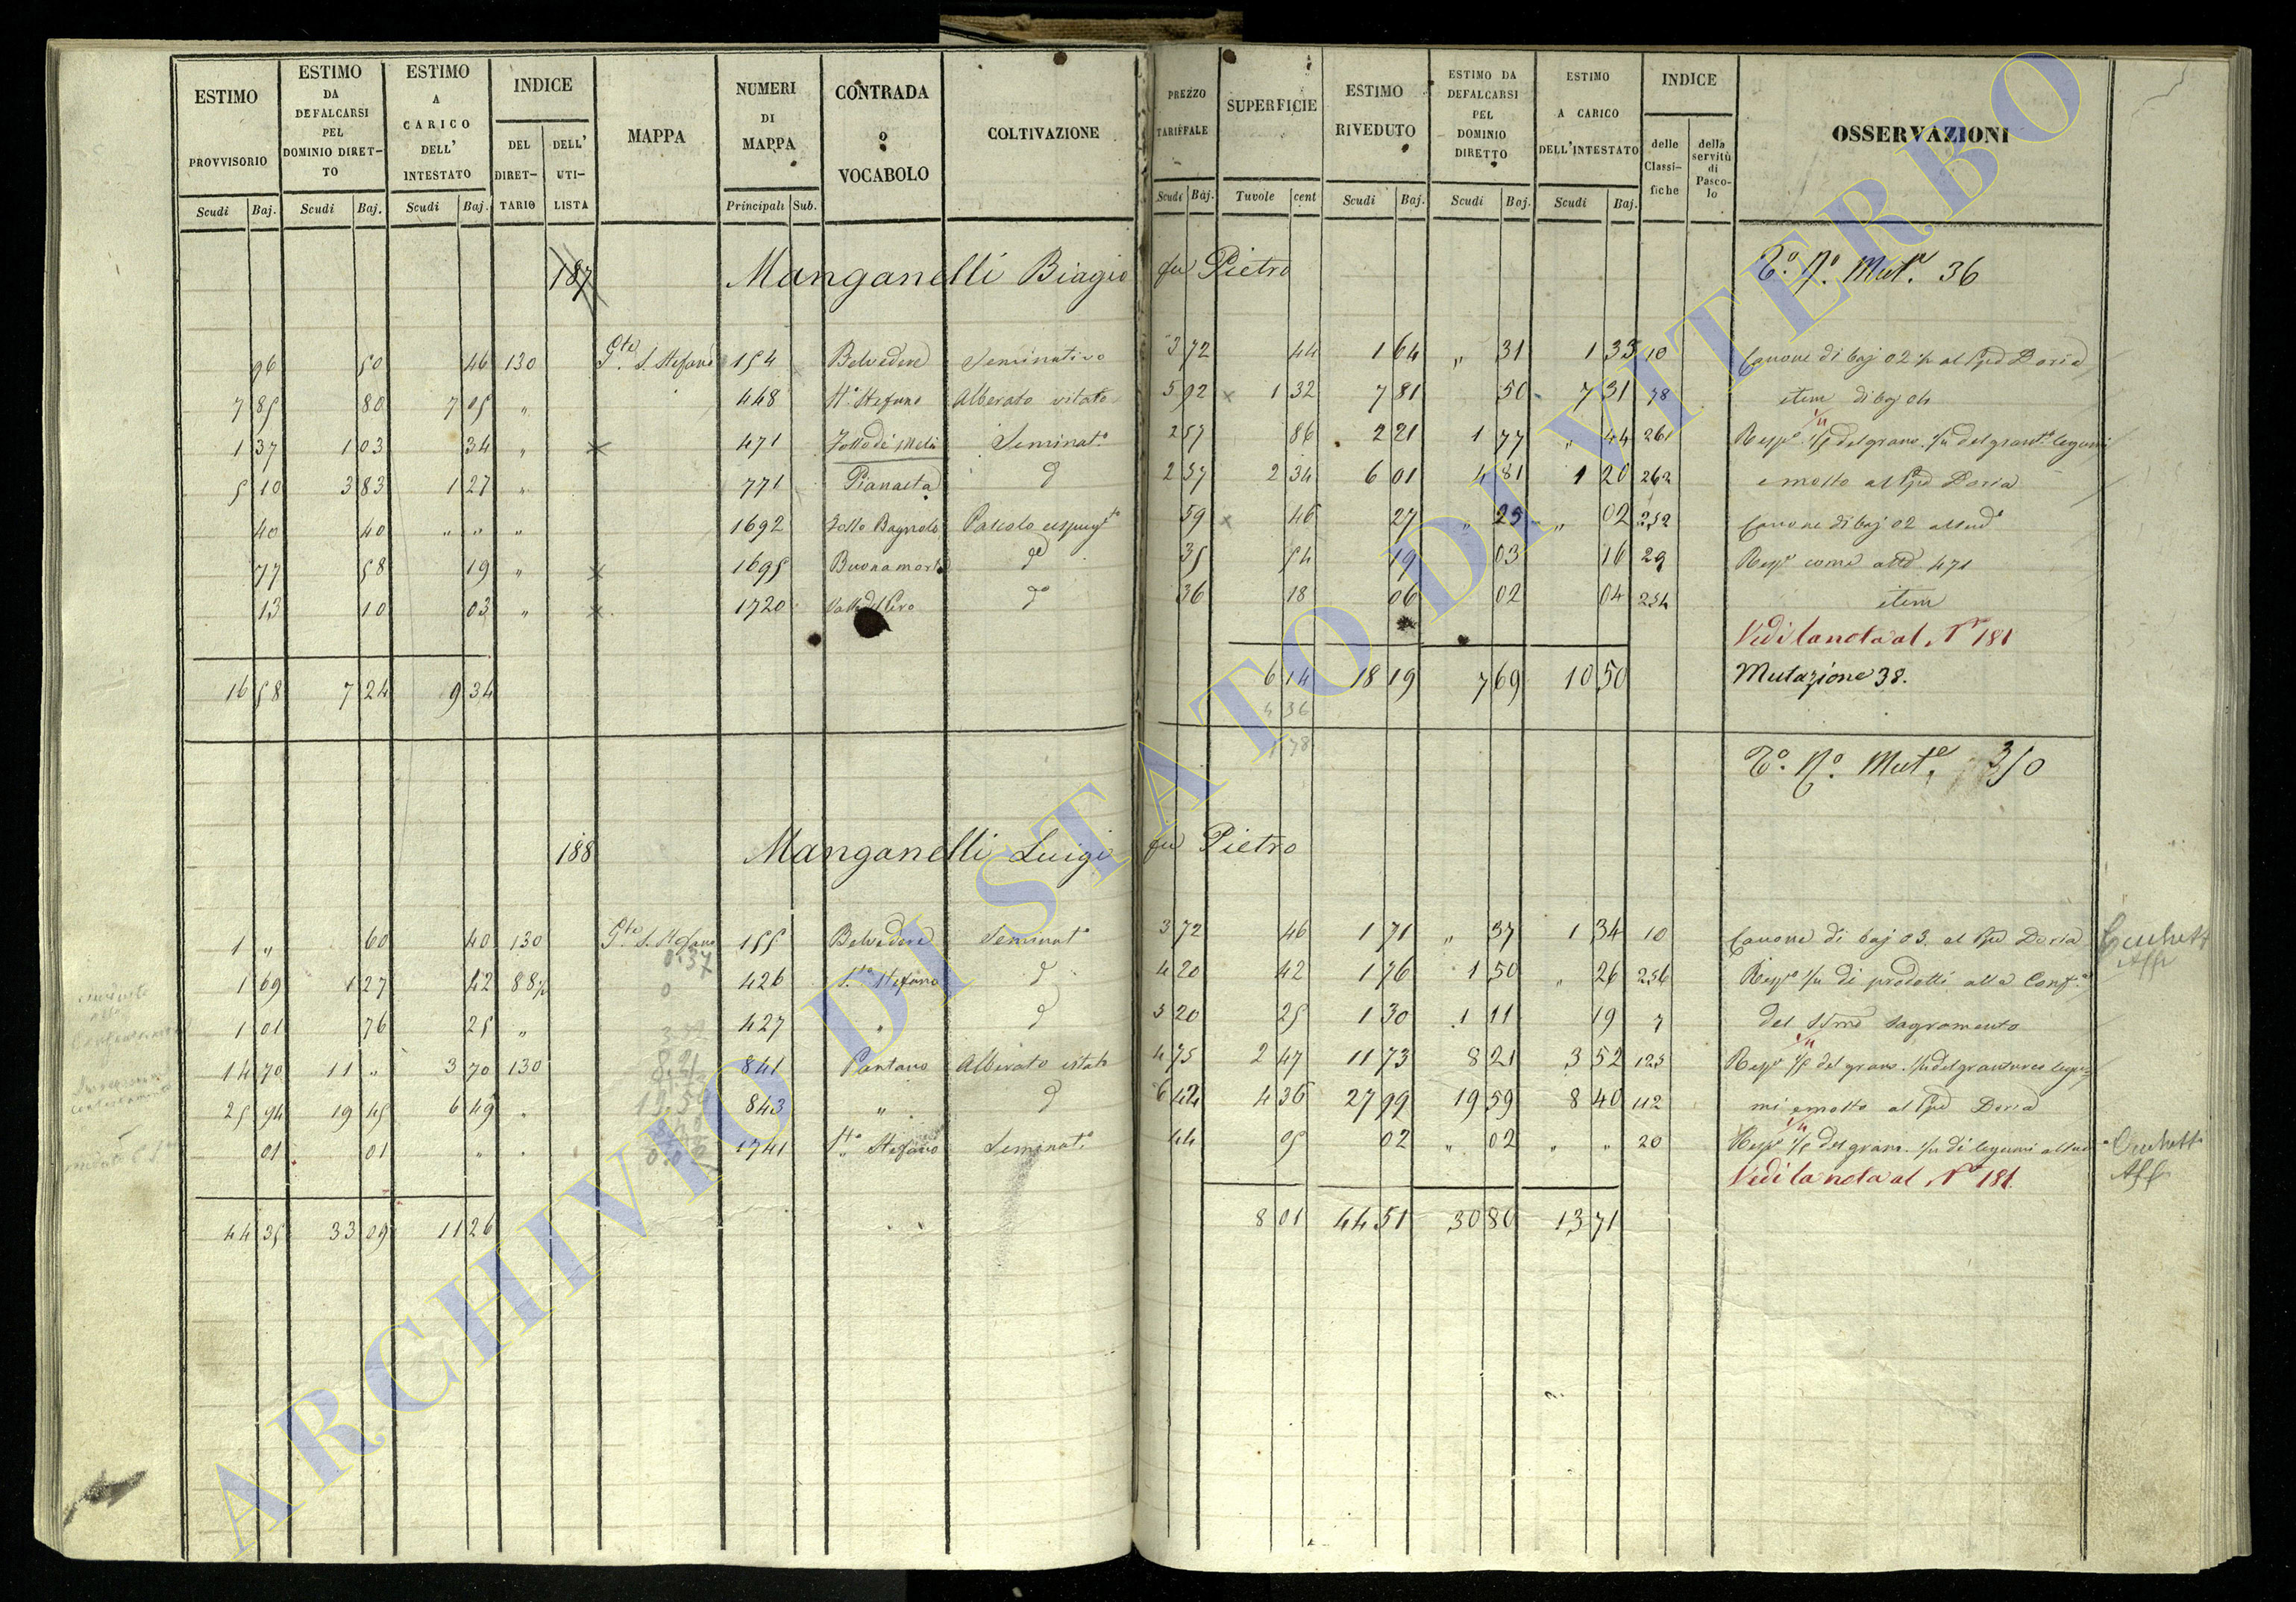 ESTIMO PROVVISORIO Scudi Baj.
ESTIMO DA DEFALCARSI PEL DOMINIO DIRET-TO Scudi Baj.
ESTIMO A CARICO DELL' INTESTATO Scudi Baj.
INDICE DEL DIRET-TARIO DELL' UTI-LISTA
MAPPA
NUMERI DI MAPPA Principali Sub.
CONTRADA o VOCABOLO
COLTIVAZIONE
PREZZO TARIFFALE Scudi Baj.
SUPERFICIE Tavole cent
ESTIMO RIVEDUTO Scudi Baj.
ESTIMO DA DEFALCARSI PEL DOMINIO DIRETTO Scudi Baj.
ESTIMO A CARICO DELL'INTESTATO Scudi Baj.
INDICE delle Classi-fiche della servitù di Pasco-lo
OSSERVAZIONI
187 Manganelli Biagio fu Pietro T.o N.o Mut.e 36
96 50 46 130 P.te S. Stefano 154 Belvedere Seminativo 3 72 44 1 64 " 31 1 33 10 Canone di baj 02 ½ al Doria
7 85 80 7 05 " 448 S.to Stefano Alberato vitato 5 92 1 32 7 81 50 7 31 78 item di baj 04
1 37 1 03 34 " 471 Seminat.o 2 57 86 2 21 1 77 " 44 261 1/5 del grano
5 10 3 83 1 27 " 771 Pianaeta d 2 57 2 34 6 01 4 81 1 20 262 e mosto al Doria
40 40 " " " 1692 Pascolo 59 46 27 " 25 " 02 252 Canone di baj 02
77 58 19 " 1695 Buonamorte d.o 35 54 19 03 16 29 come al 471
13 10 03 " 1720 d.o 36 18 06 02 04 254 item
Vedi la nota al N.o 181
16 58 7 24 9 34 6 14 18 19 7 69 10 50 Mutazione 38.
4 36
1 78
T.o N.o Mut.e 350
188 Manganelli Luigi fu Pietro
1 " 60 40 130 P.te S. Stefano 155 Belvedere Seminat.o 3 72 46 1 71 " 37 1 34 10 Canone di baj 03 al Doria
1 69 1 27 42 88 426 S.to Stefano d 4 20 42 1 76 1 50 " 26 256 di prodotti alla Conf.a
1 01 76 25 " 427 " d 5 20 25 1 30 1 11 19 7 del SSmo Sagramento
14 70 11 " 3 70 130 841 Pantano Alberato vitato 4 75 2 47 11 73 8 21 3 52 123 1/5 del grano
25 94 19 45 6 49 843 " d 6 42 4 36 27 99 19 59 8 40 112 mi e mosto al Doria
01 01 " 1741 S.to Stefano Seminat.o 44 05 02 " 02 " " 20 1/5 del grano di legumi
Vedi la nota al N.o 181
44 35 33 09 11 26 8 01 44 51 30 80 13 71
ARCHIVIO DI STATO DI VITERBO